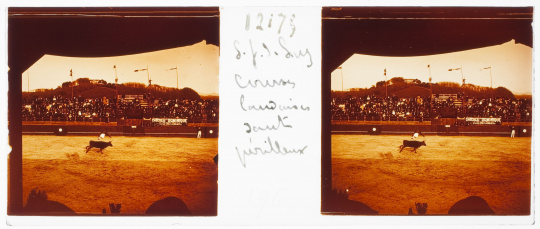 12179
S. J. d. Luz
Courses
landaises
saut
périlleux